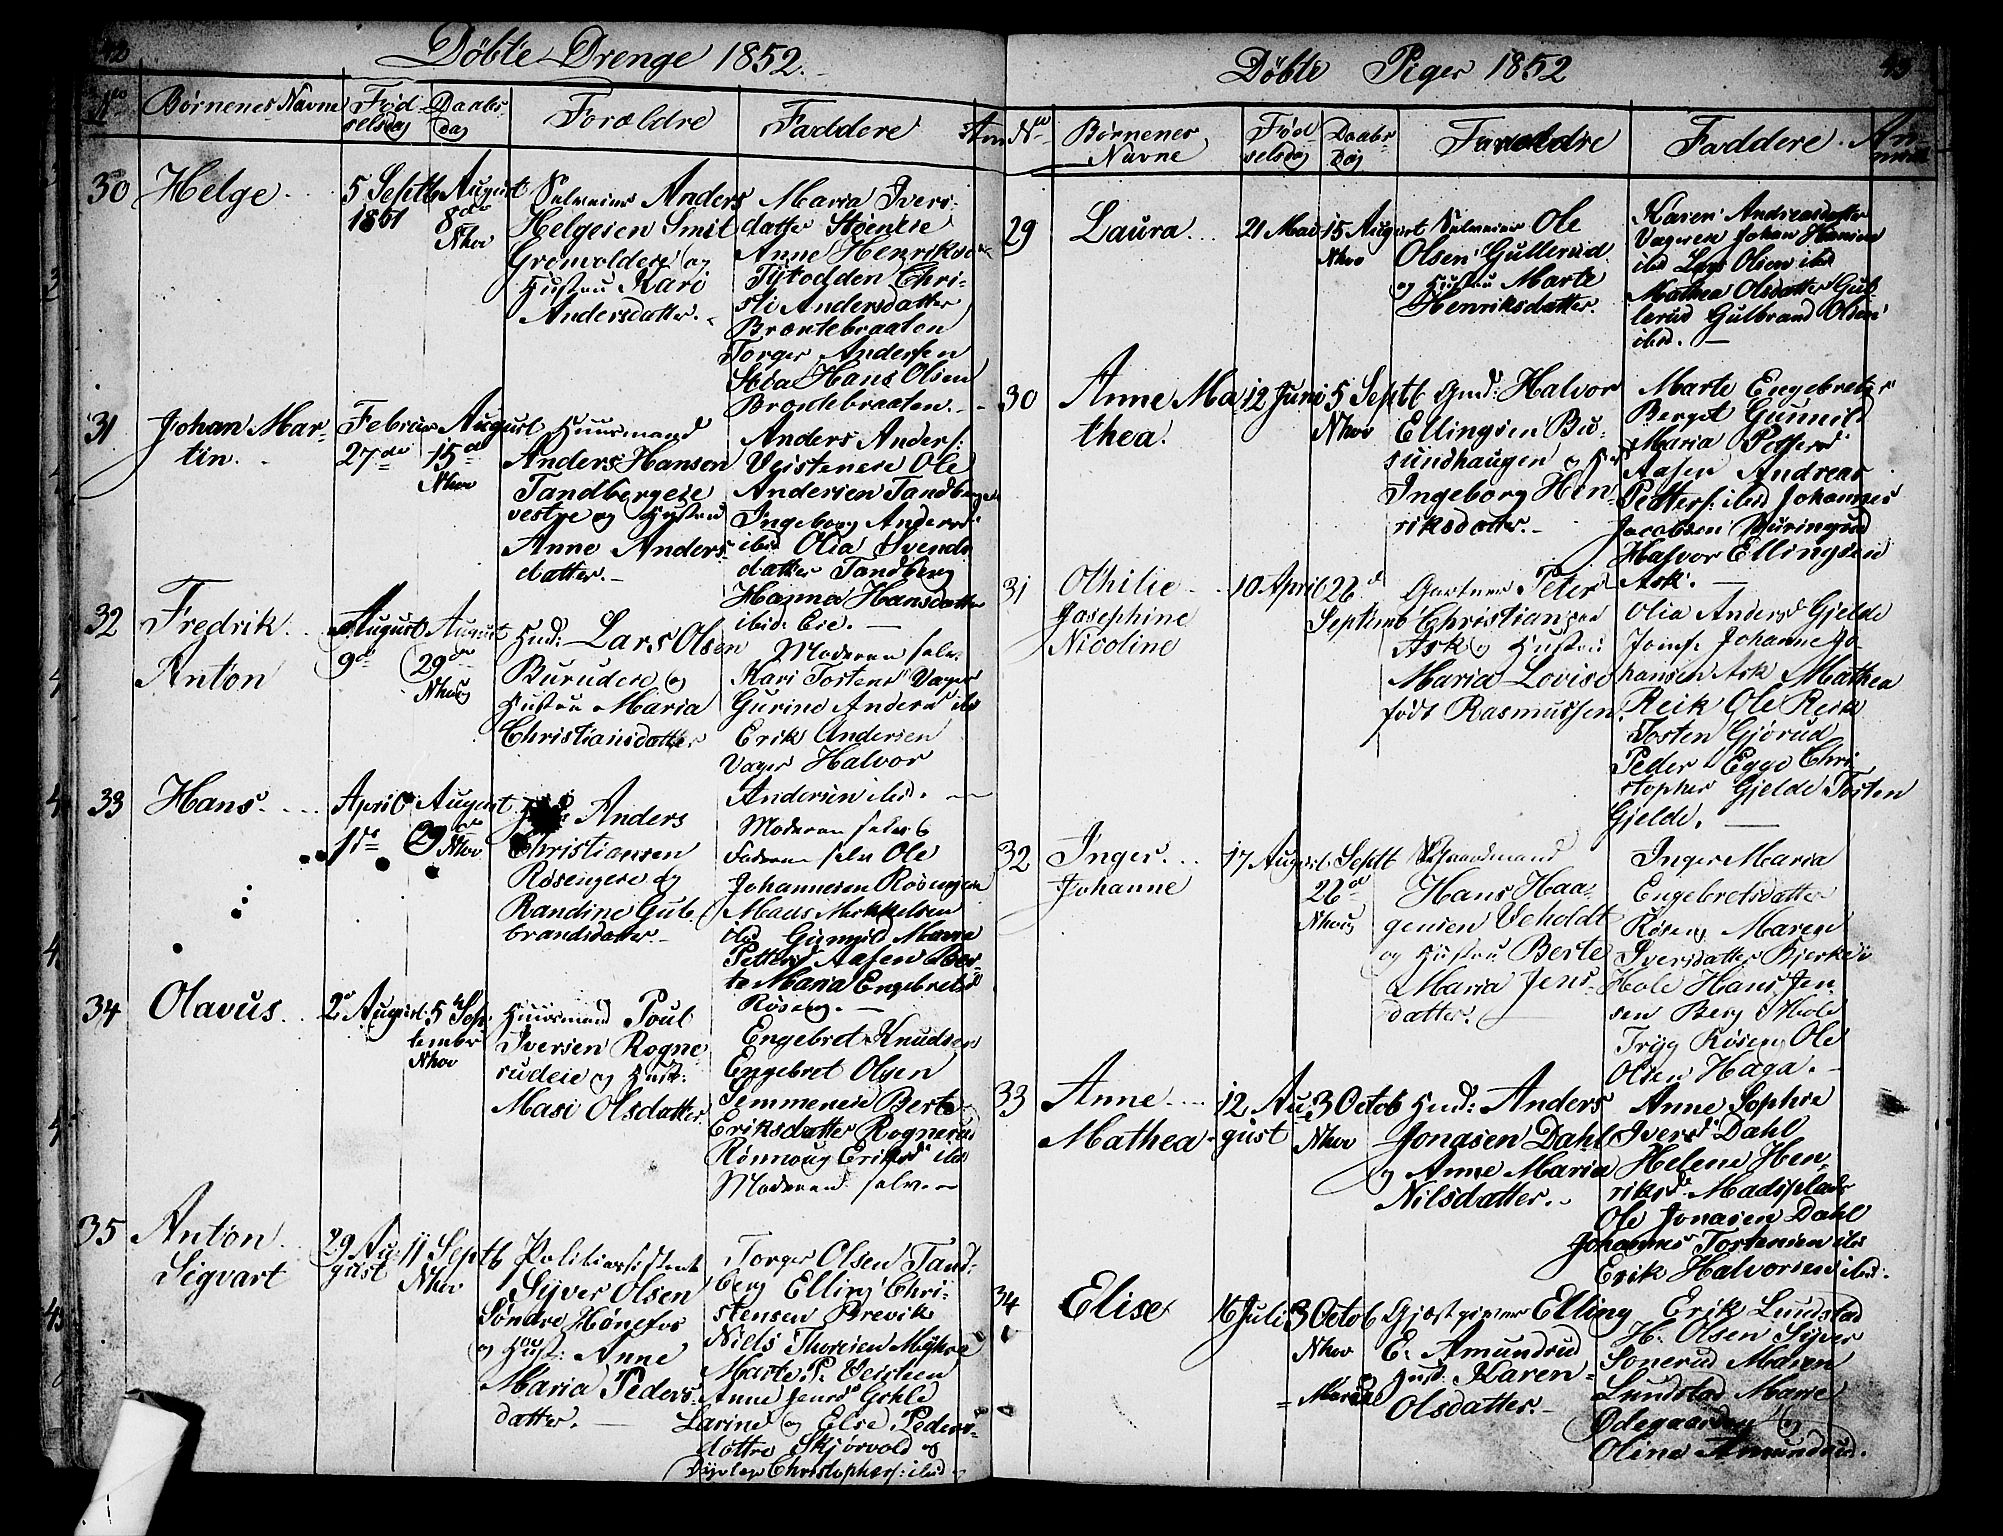 42
Døbte Drenge 1852.
No
Børnenes Navne
Fød-
selsdag
Daabs
dag
Forældre
Faddere
Anm
30
Helge.
5 Septb
1851
August
8de
Nhov
Anders
Helgesen Smit
og
Hustru Kari
Andersdatter.
Maria Ivers-
datter
Anne Henriks
Chri-
sti Andersdatter
Bræntebraaten
Torger Andersen
Hans Olsen
Bræntebraaten.
31
Johan Mar-
tin.
Februar
27de
August
15de
Nhov
Huusmand
Anders Hansen
Tandbergeie
vestre og Hustru
Anne Anders-
datter.
Anders Anders:
Ole
Andersen Tandberg
Ingeborg Anders
ibid Olia Svends
datter Tandberg
Hanna Hansdatter
ibid: Eie.
32
Fredrik
Anton
August
9de
August
29de
Nhov
Huusd: Lars Olsen
og
Hustru Maria
Christiansdatter
Moderen selv.
Kari Tostens Vager
Gurine Anders ibd
Erik Andersen
Vager Halvor
Andersen ibid.
33
Hans.
April
1ste
August
29de
Nhov
Anders
Christiansen
Røsengeie og
Randine Gul-
brandsdatter.
Moderen selv
Faderen selv Ole
Johannesen Røsengen
Mads Mikkelsen
ibd Maria
Petters Aasen Mar-
te Maria Engebretsd
Røseng.
34
Olavus.
2 August
5 Sep-
tembr
Nhov
Huusmand Poul
Iversen Rogne
rudeie og Hust:
Masi Olsdatter.
Engebret Knudsen
Engebret Olsen
Berte
Eriksdatter Rognerud
Rønnoug Eriksd ibd
Moderen selv.
35
Anton
Sigvart
29 Au-
gust
11 Septb
Nhov
Politiassistent
Syver Olsen
Søndre Hønefos
og Hust: Anne
Maria Peders-
datter.
Torger Olsen Tand-
berg Elling Chri-
stensen Brevik
Niels Thoresen Myhre
Marte P. Veisteen
Anne Jensd
Larine og Else Peders-
døttre Skjørvold og
Christophers: ibid
43
Døbte Piger 1852
No
Børnenes
Navne
Fød
selsdag
Daabs-
Dag
Forældre
Faddere.
An-
mærk.
29
Laura
21 Mai
15 August
Nhov
Ole
Olsen Gullerud
og Hustru Marte
Henriksdatter.
Karen Andreasdatter
Vageren Johan Hansen
ibd Lars Olsen ibd
Mathea Olsdatter Gul-
lerud Gulbrand Olsen
ibid.
30
Anne Ma
thea.
12 Juni
5 Septb
Nhov
Huusd: Halvor
Ellingsen Bu-
sundhaugen og Hust
Ingeborg Hen-
riksdatter.
Marte Engebrets
Berget Gunild
Maria Petters
Aasen Andreas
Petters: ibid Johannes
Jacobsen
Halvor Ellingsen
Ask.
31
Othilie
Josephine
Nicoline
10 April
26de
Septemb
Gartner Peter
Christiansen
Ask og Hustru
Maria Lovise
født Rasmussen
Olia Anders Gjelde
Jomf: Johanne Jo-
hansen Ask Mathea
Reik Ole Reik
Tosten Gjørud
Peder Egge Chri-
stopher Gjelde Tosten
Gjelde.
32
Inger
Johanne
17 August
Septb
26de
Nhov
Gaardmand
Hans Haa-
gensen Veholdt
og Hustru Berte
Maria Jens-
datter.
Inger Maria
Engebretsdatter
Røseng Maren
Iversdatter Bjerke i
Hole Hans Jen-
sen Berg i Hole
Tryg Røseng Ole
Olsen Haga.
33
Anne
Mathea
12 Au-
gust
3 Octob
Nhov
Huusd: Anders
Jonasen Dahl
og Anne Maria
Nilsdatter.
Anne Sophie
Ivers Dahl
Helene Hen-
riksd: Madsplads
Ole Jonasen Dahl
Johannes Tostensen ibd
Erik Halvorsen ibd:
34
Elise
16 Juli
3 Octob
Nhov
Gjæstgiver Elling
E. Amundrud
Hust: Karen
Olsdatter.
Erik Lundstad
H. Olsen Syver
Sonerud Maren
Lundstad Marie
Ødegaarden og
Oline Amundrud.